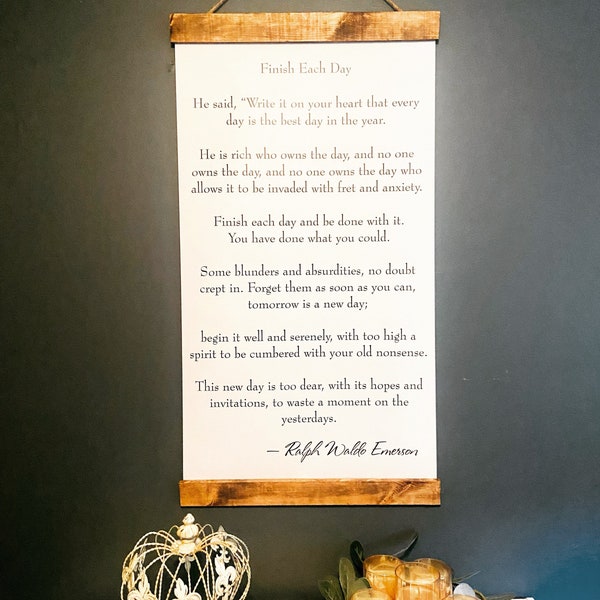 Finish Each Day
He said, “Write it on your heart that every
day is the best day in the year.
He is rich who owns the day, and no one
owns the day, and no one owns the day who
allows it to be invaded with fret and anxiety.
Finish each day and be done with it.
You have done what you could.
Some blunders and absurdities, no doubt
crept in. Forget them as soon as you can,
tomorrow is a new day;
begin it well and serenely, with too high a
spirit to be cumbered with your old nonsense.
This new day is too dear, with its hopes and
invitations, to waste a moment on the
yesterdays.
— Ralph Waldo Emerson